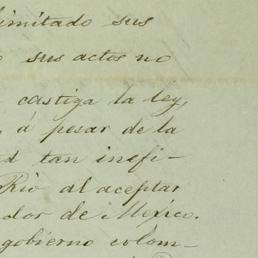 limitado sus
sus actos no
castiga la ley,
á pesar de la
tan inefi-
Rio al aceptar
dor de México.
gobierno colom-